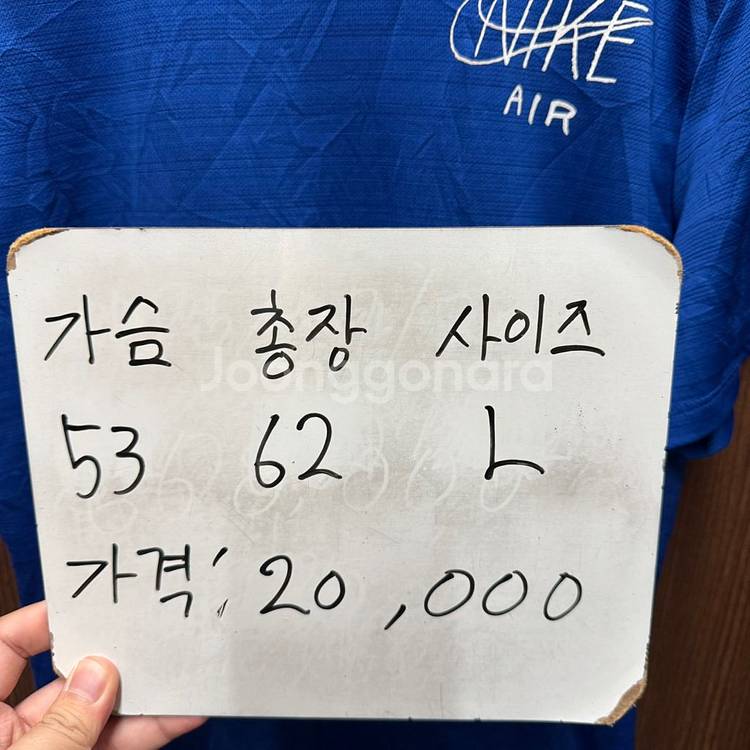 NIKE
AIR
가슴 총장 사이즈
Joonggonara
53 62 L
가격: 20,000